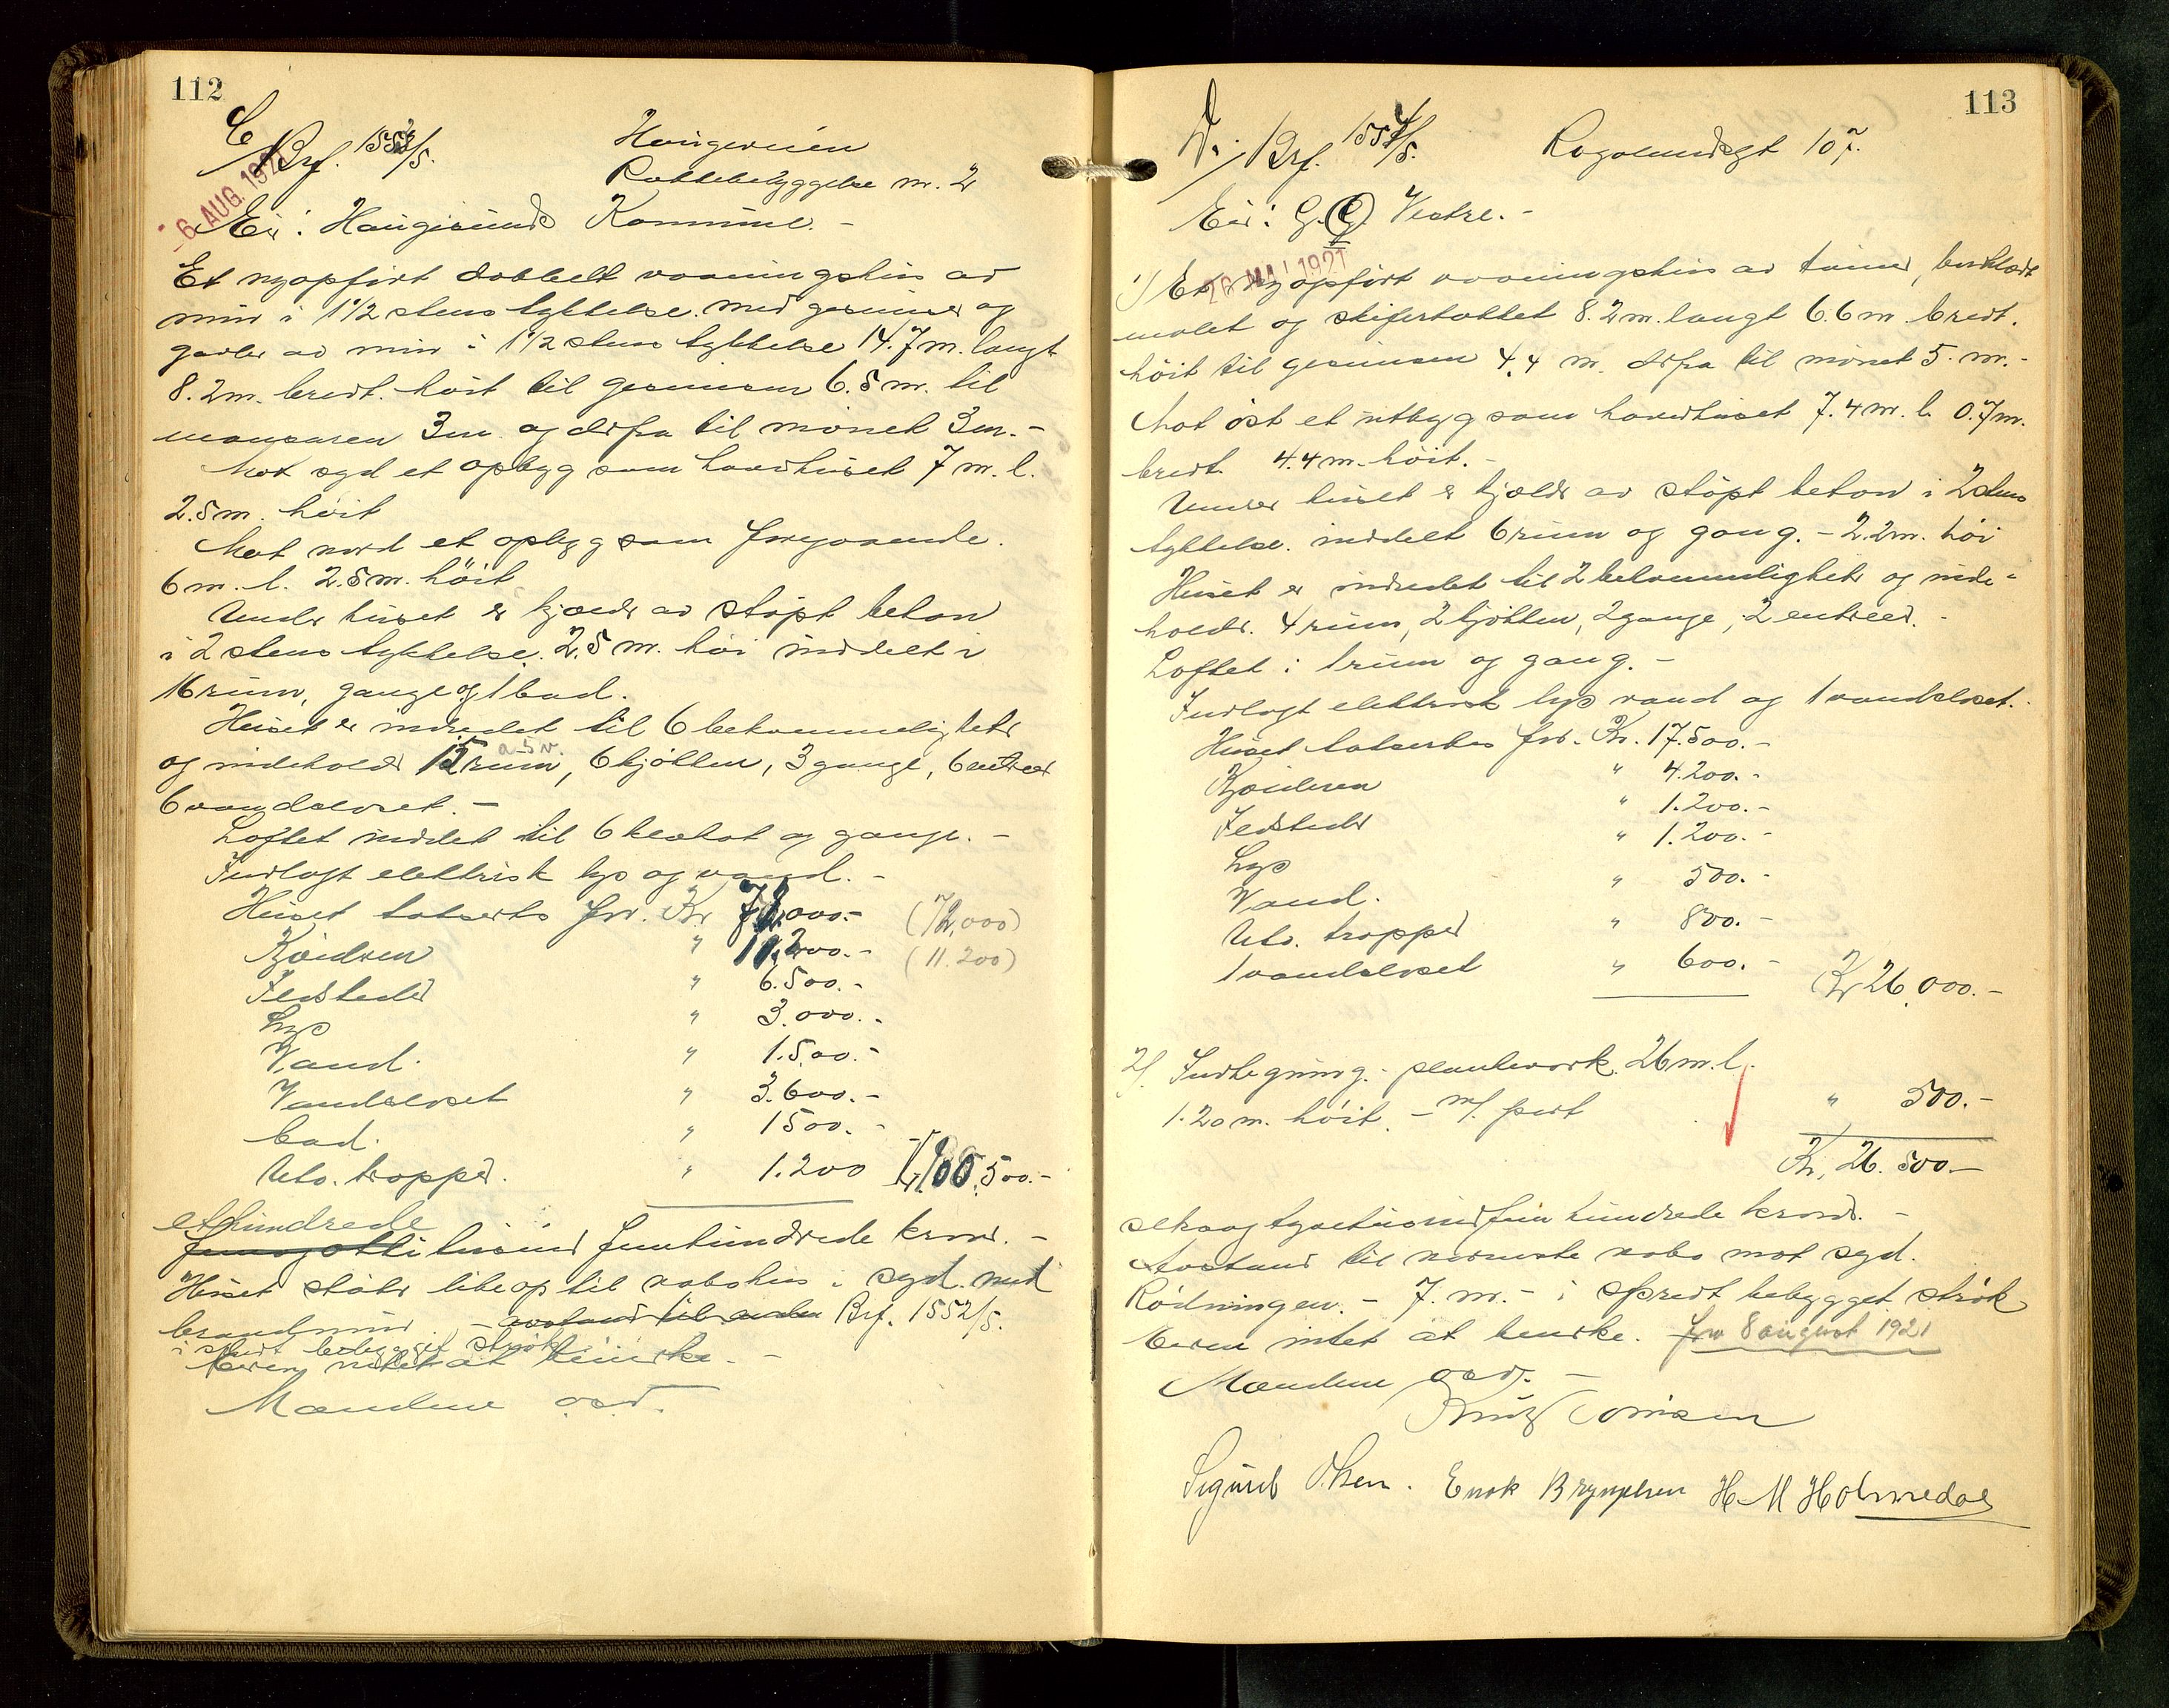 112
C Brf. 1553/5.
Haugeveien
Rækkebebyggelse nr. 2
6 AUG. 192
Eier: Haugesunds Kommune. -
Et nyopført dobbelt vaaningshus av
mur i 1 1/2 stens tykkelse med gesimser og
gavler av mur i 1 1/2 stens tykkelse 14.7m. langt
8.2m. bredt. høit til gesimsen 6.5m. til
mansaren 3m og derfra til mønet 3m. -
Mot syd et opbygg som hovedhuset 7 m. l.
2.5m. høit
Mot nord et opbygg som foregaaende.
6 m. l. 2.5m. høit
Under huset er kjælder av støpt beton
i 2 stens tykkelse. 2.5 m. høi inddelt i
16 rum, gange og 1 bad.
Huset er indredet til 6 bekvemmeligheter
og indeholder 15 rum, 6 kjøkken, 3 gange, 6 entreer
6 vandcloset. -
Loftet inddelt til 6 kvist og gange. -
Indlagt elektrisk lys og vand. -
Huset taksertes for. Kr 72,000.- (72,000)
Kjælderen " 11,200.- (11.200)
Ildsteder " 6.500.-
Lys " 3.000.-
Vand. " 1.500.-
Vandcloset " 3.600.-
bad. " 1500.-
Utv. trapper. " 1.200 Kr. 100.500.-
ethundrede
femogotti tusind femhundrede kroner. -
Huset støter like op til nabohus i syd med
brandmur - avstand til anden Brf. 1552/5.
i spredt bebygget strøk
Eieren intet at bemerke. -
Mændene osv.
113
D. Brf. 1554/5. Rogalandsgt 107.
Eier: G. G. Vestre. -
26 MAI 1921
1) Et nyopført vaaningshus av tømmer, bordklædt
malet og skifertækket 8.2m. langt 6.6m bredt.
høit til gesimsen 4.4 m. derfra til mønet 5. m. -
Mot øst et utbygg som hovedhuset 7.4m. l. 0.7m.
bredt 4.4m. høit. -
Under huset er kjælder av støpt beton i 2 stens
tykkelse. inddelt 6 rum og gang. - 2.2m. høi
Huset er indredet til 2 bekvemmeligheter og inde-
holder. 4 rum, 2 kjøkken, 2 gange, 2 entreer. -
Loftet i 1 rum og gang. -
Indlagt elektrisk lys vand og 1 vandcloset.
Huset taksertes for. Kr. 17.500.-
Kjælderen " 4.200.-
Ildsteder " 1.200.-
Lys " 1.200.-
Vand. " 500.-
Utv. trapper " 800.-
1 vandcloset " 600.- Kr 26,000.-
2). Indhegning. - plankeverk. 26 m. l.
1.20 m. høit. - m/. port " 500.-
Kr. 26.500.-
seksogtyvetusindfemhundrede kroner. -
Avstand til nærmeste nabo mot syd.
Rødningen. - 7. m. - i spredt bebygget strøk
Eieren intet at bemerke. før 8 august 1921
Mændene osv. -
Knut Tonisen
Sigurd Olsen. Enok Brynjelsen H M Holmedal